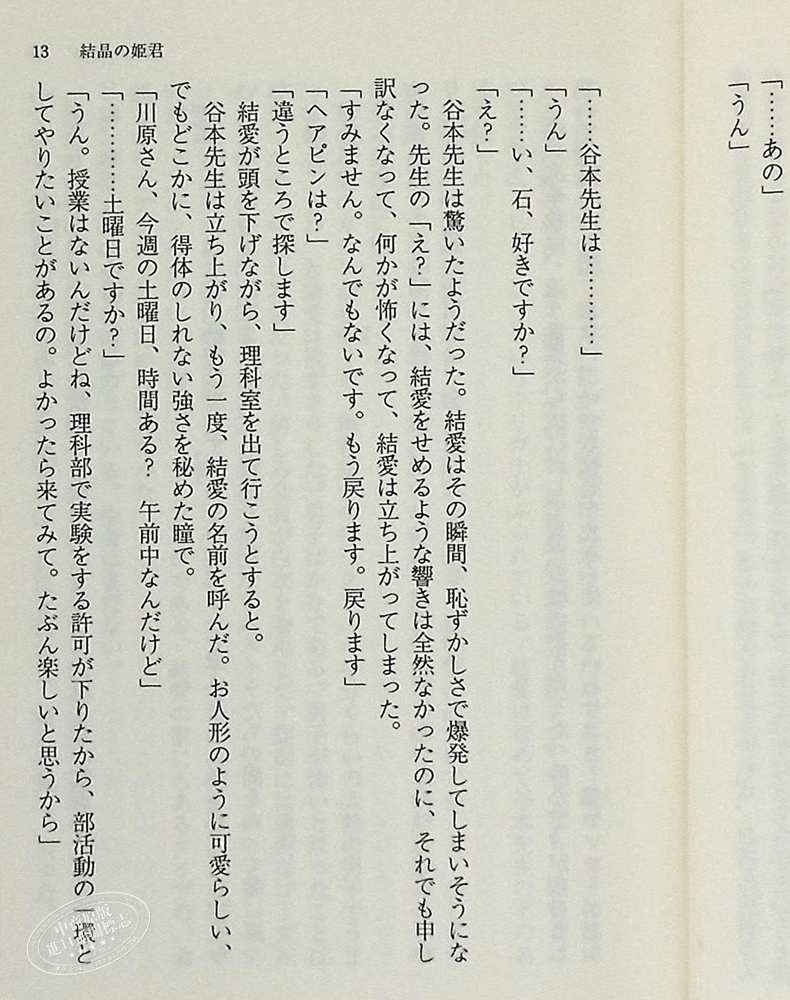 「……あの」
「うん」
13　結晶の姫君
「……谷本先生は…………」
「うん」
「……い、石、好きですか？」
「え？」
谷本先生は驚いたようだった。結愛はその瞬間、恥ずかしさで爆発してしまいそうにな
った。先生の「え？」には、結愛をせめるような響きは全然なかったのに、それでも申し
訳なくなって、何かが怖くなって、結愛は立ち上がってしまった。
「すみません。なんでもないです。もう戻ります。戻ります」
「ヘアピンは？」
「違うところで探します」
結愛が頭を下げながら、理科室を出て行こうとすると。
谷本先生は立ち上がり、もう一度、結愛の名前を呼んだ。お人形のように可愛らしい、
でもどこかに、得体のしれない強さを秘めた瞳で。
「川原さん、今週の土曜日、時間ある？　午前中なんだけど」
「…………土曜日ですか？」
「うん。授業はないんだけどね、理科部で実験をする許可が下りたから、部活動の一環と
してやりたいことがあるの。よかったら来てみて。たぶん楽しいと思うから」
中商原版
進口圖書標志